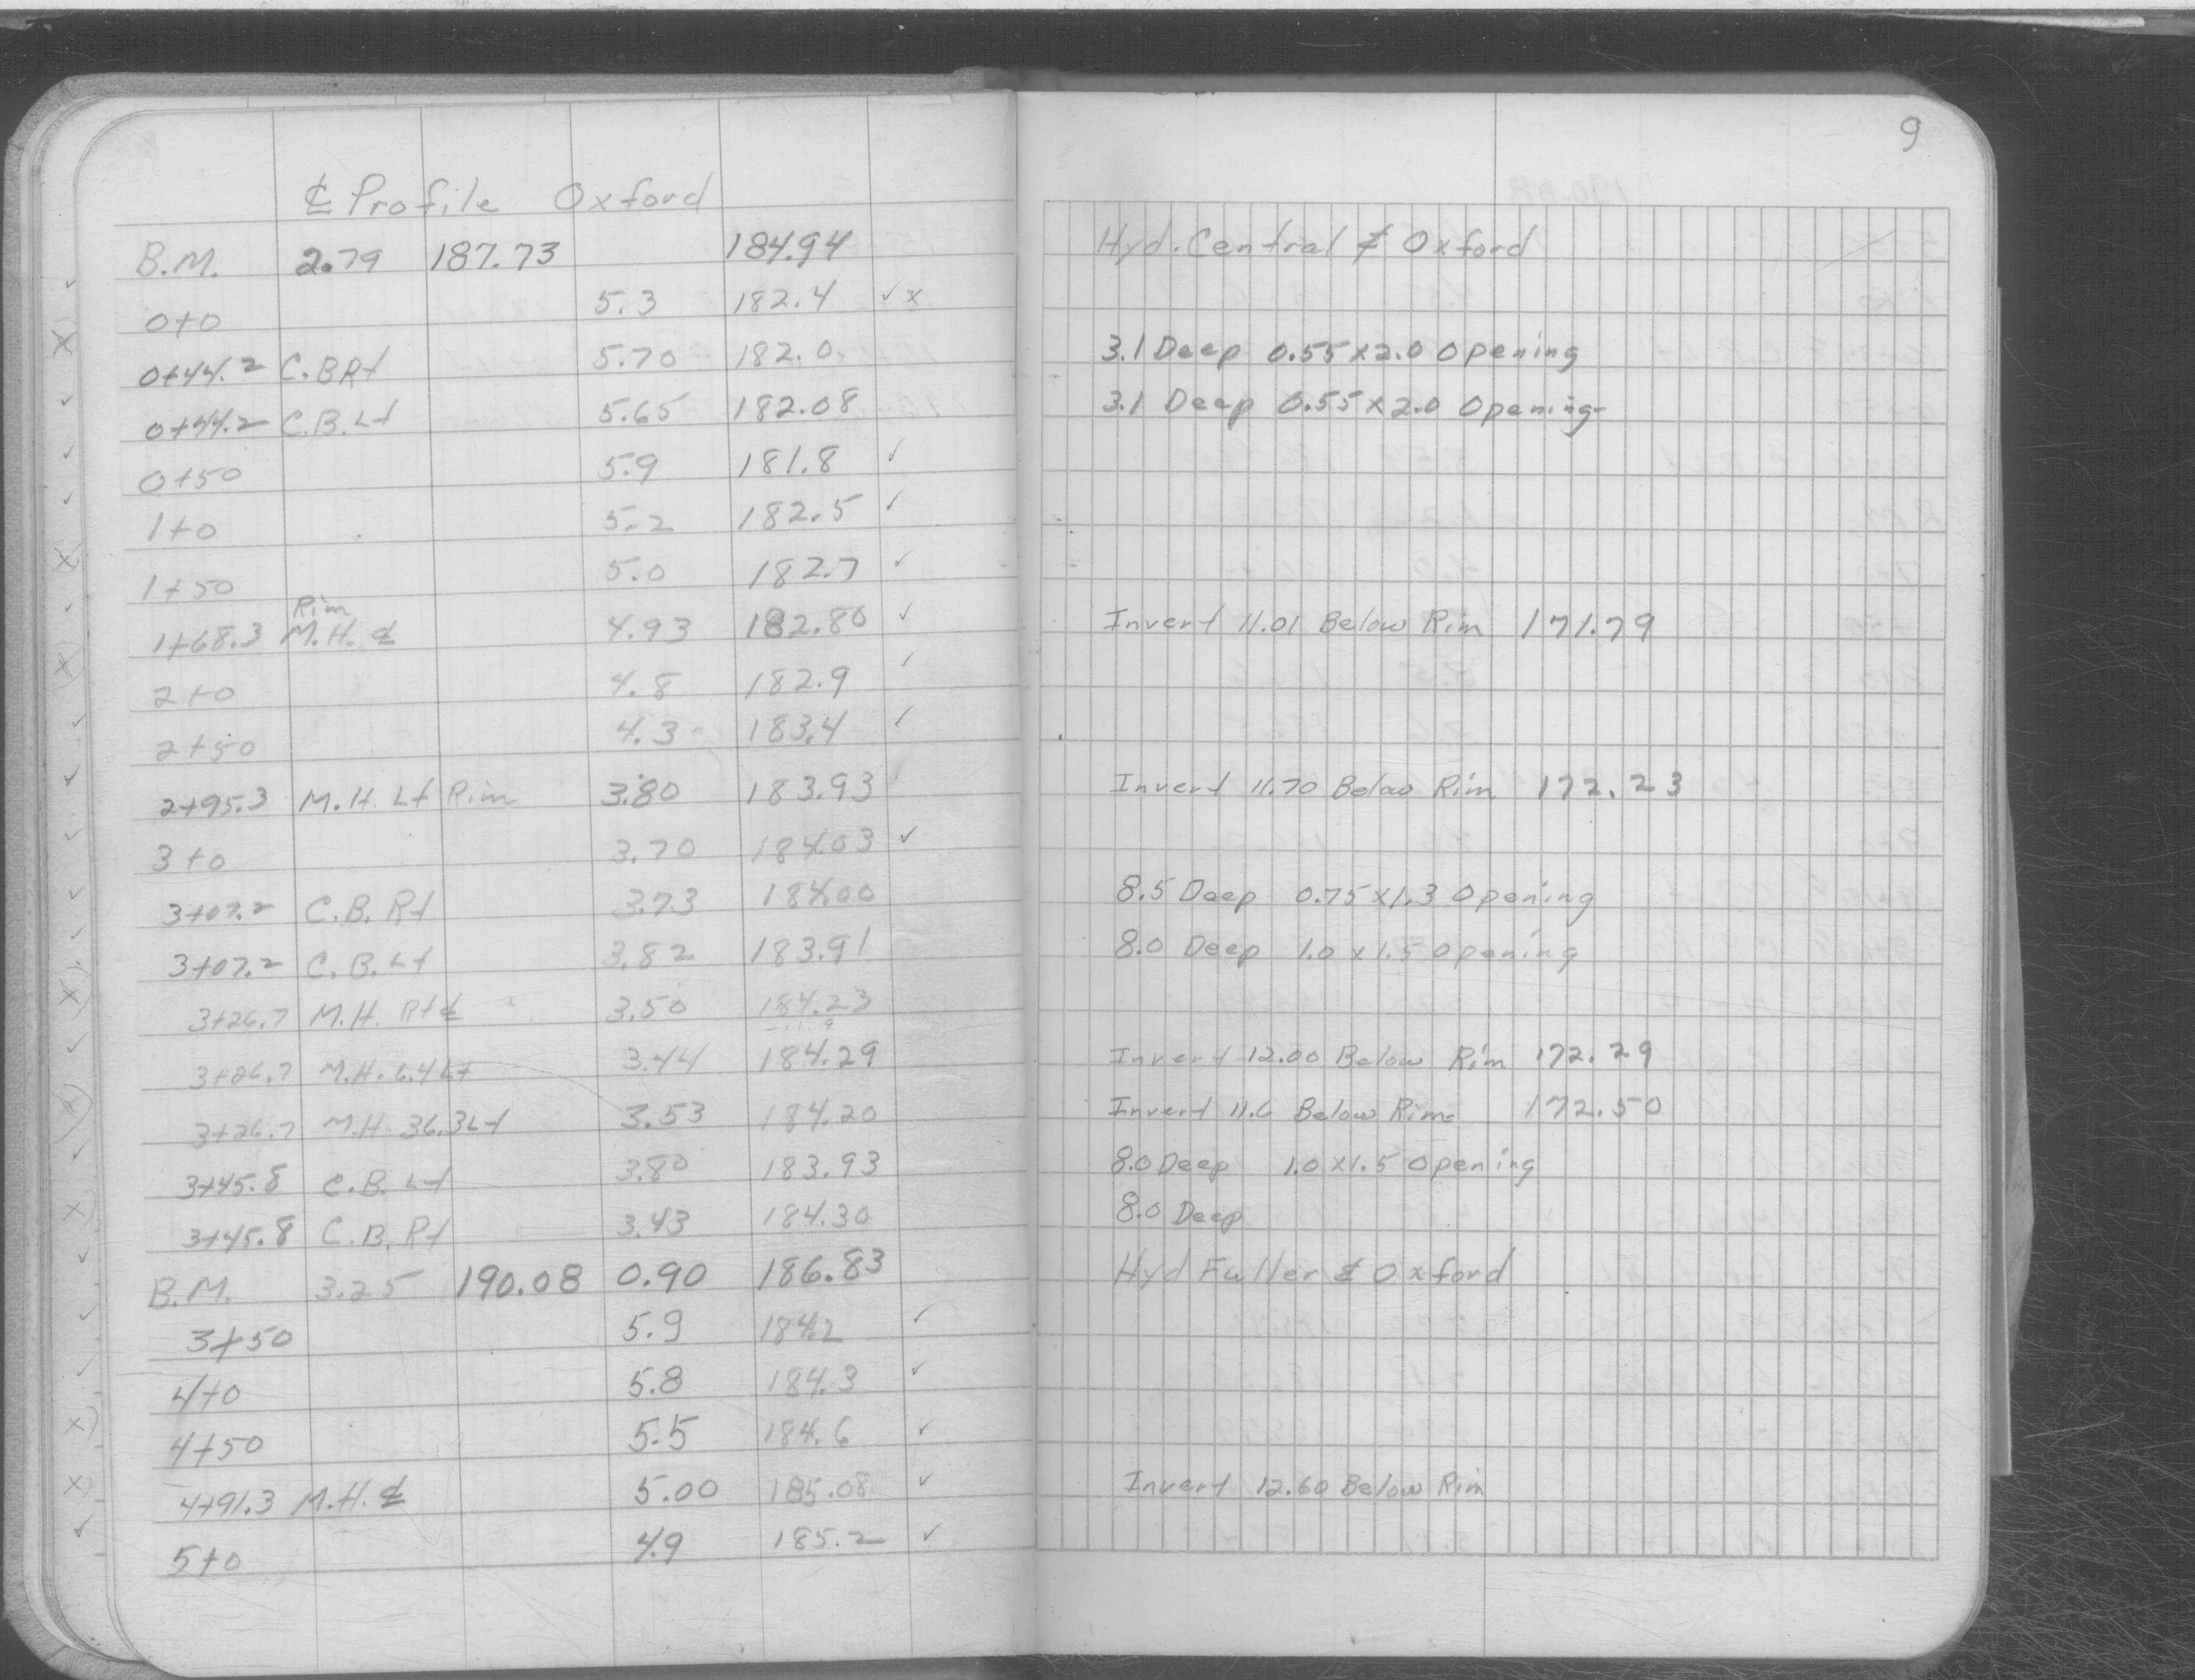 9
℄ Profile Oxford
B.M. 2.79 187.73 184.94 Hyd. Central & Oxford
0+0 5.3 182.4 ✓ x
0+44.2 C.B Rt 5.70 182.0 3.1 Deep 0.55 x 2.0 Opening
0+44.2 C.B. Lt 5.65 182.08 3.1 Deep 0.55 x 2.0 Opening
0+50 5.9 181.8 ✓
1+0 5.2 182.5 ✓
1+50 5.0 182.7 ✓
Rim
1+68.3 M.H. ℄ 4.93 182.80 ✓ Invert 11.01 Below Rim 171.79
2+0 4.8 182.9 ✓
2+50 4.3 183.4 ✓
2+95.3 M.H. Lt Rim 3.80 183.93 Invert 11.70 Below Rim 172.23
3+0 3.70 184.03 ✓
3+07.2 C.B. Rt 3.73 184.00 8.5 Deep 0.75 x 1.3 Opening
3+07.2 C.B. Lt 3.82 183.91 8.0 Deep 1.0 x 1.5 Opening
3+26.7 M.H. Rt ℄ 3.50 184.23
3+26.7 M.H. 6.4 Lt 3.44 184.29 Invert 12.00 Below Rim 172.29
3+26.7 M.H. 36.3 Lt 3.53 184.20 Invert 11.6 Below Rim 172.50
3+45.8 C.B. Lt 3.80 183.93 8.0 Deep 1.0 x 1.5 Opening
3+45.8 C.B. Rt 3.43 184.30 8.0 Deep
B.M. 3.25 190.08 0.90 186.83 Hyd Fuller & Oxford
3+50 5.9 184.2 ✓
4+0 5.8 184.3 ✓
4+50 5.5 184.6 ✓
4+91.3 M.H. ℄ 5.00 185.08 ✓ Invert 12.60 Below Rim
5+0 4.9 185.2 ✓